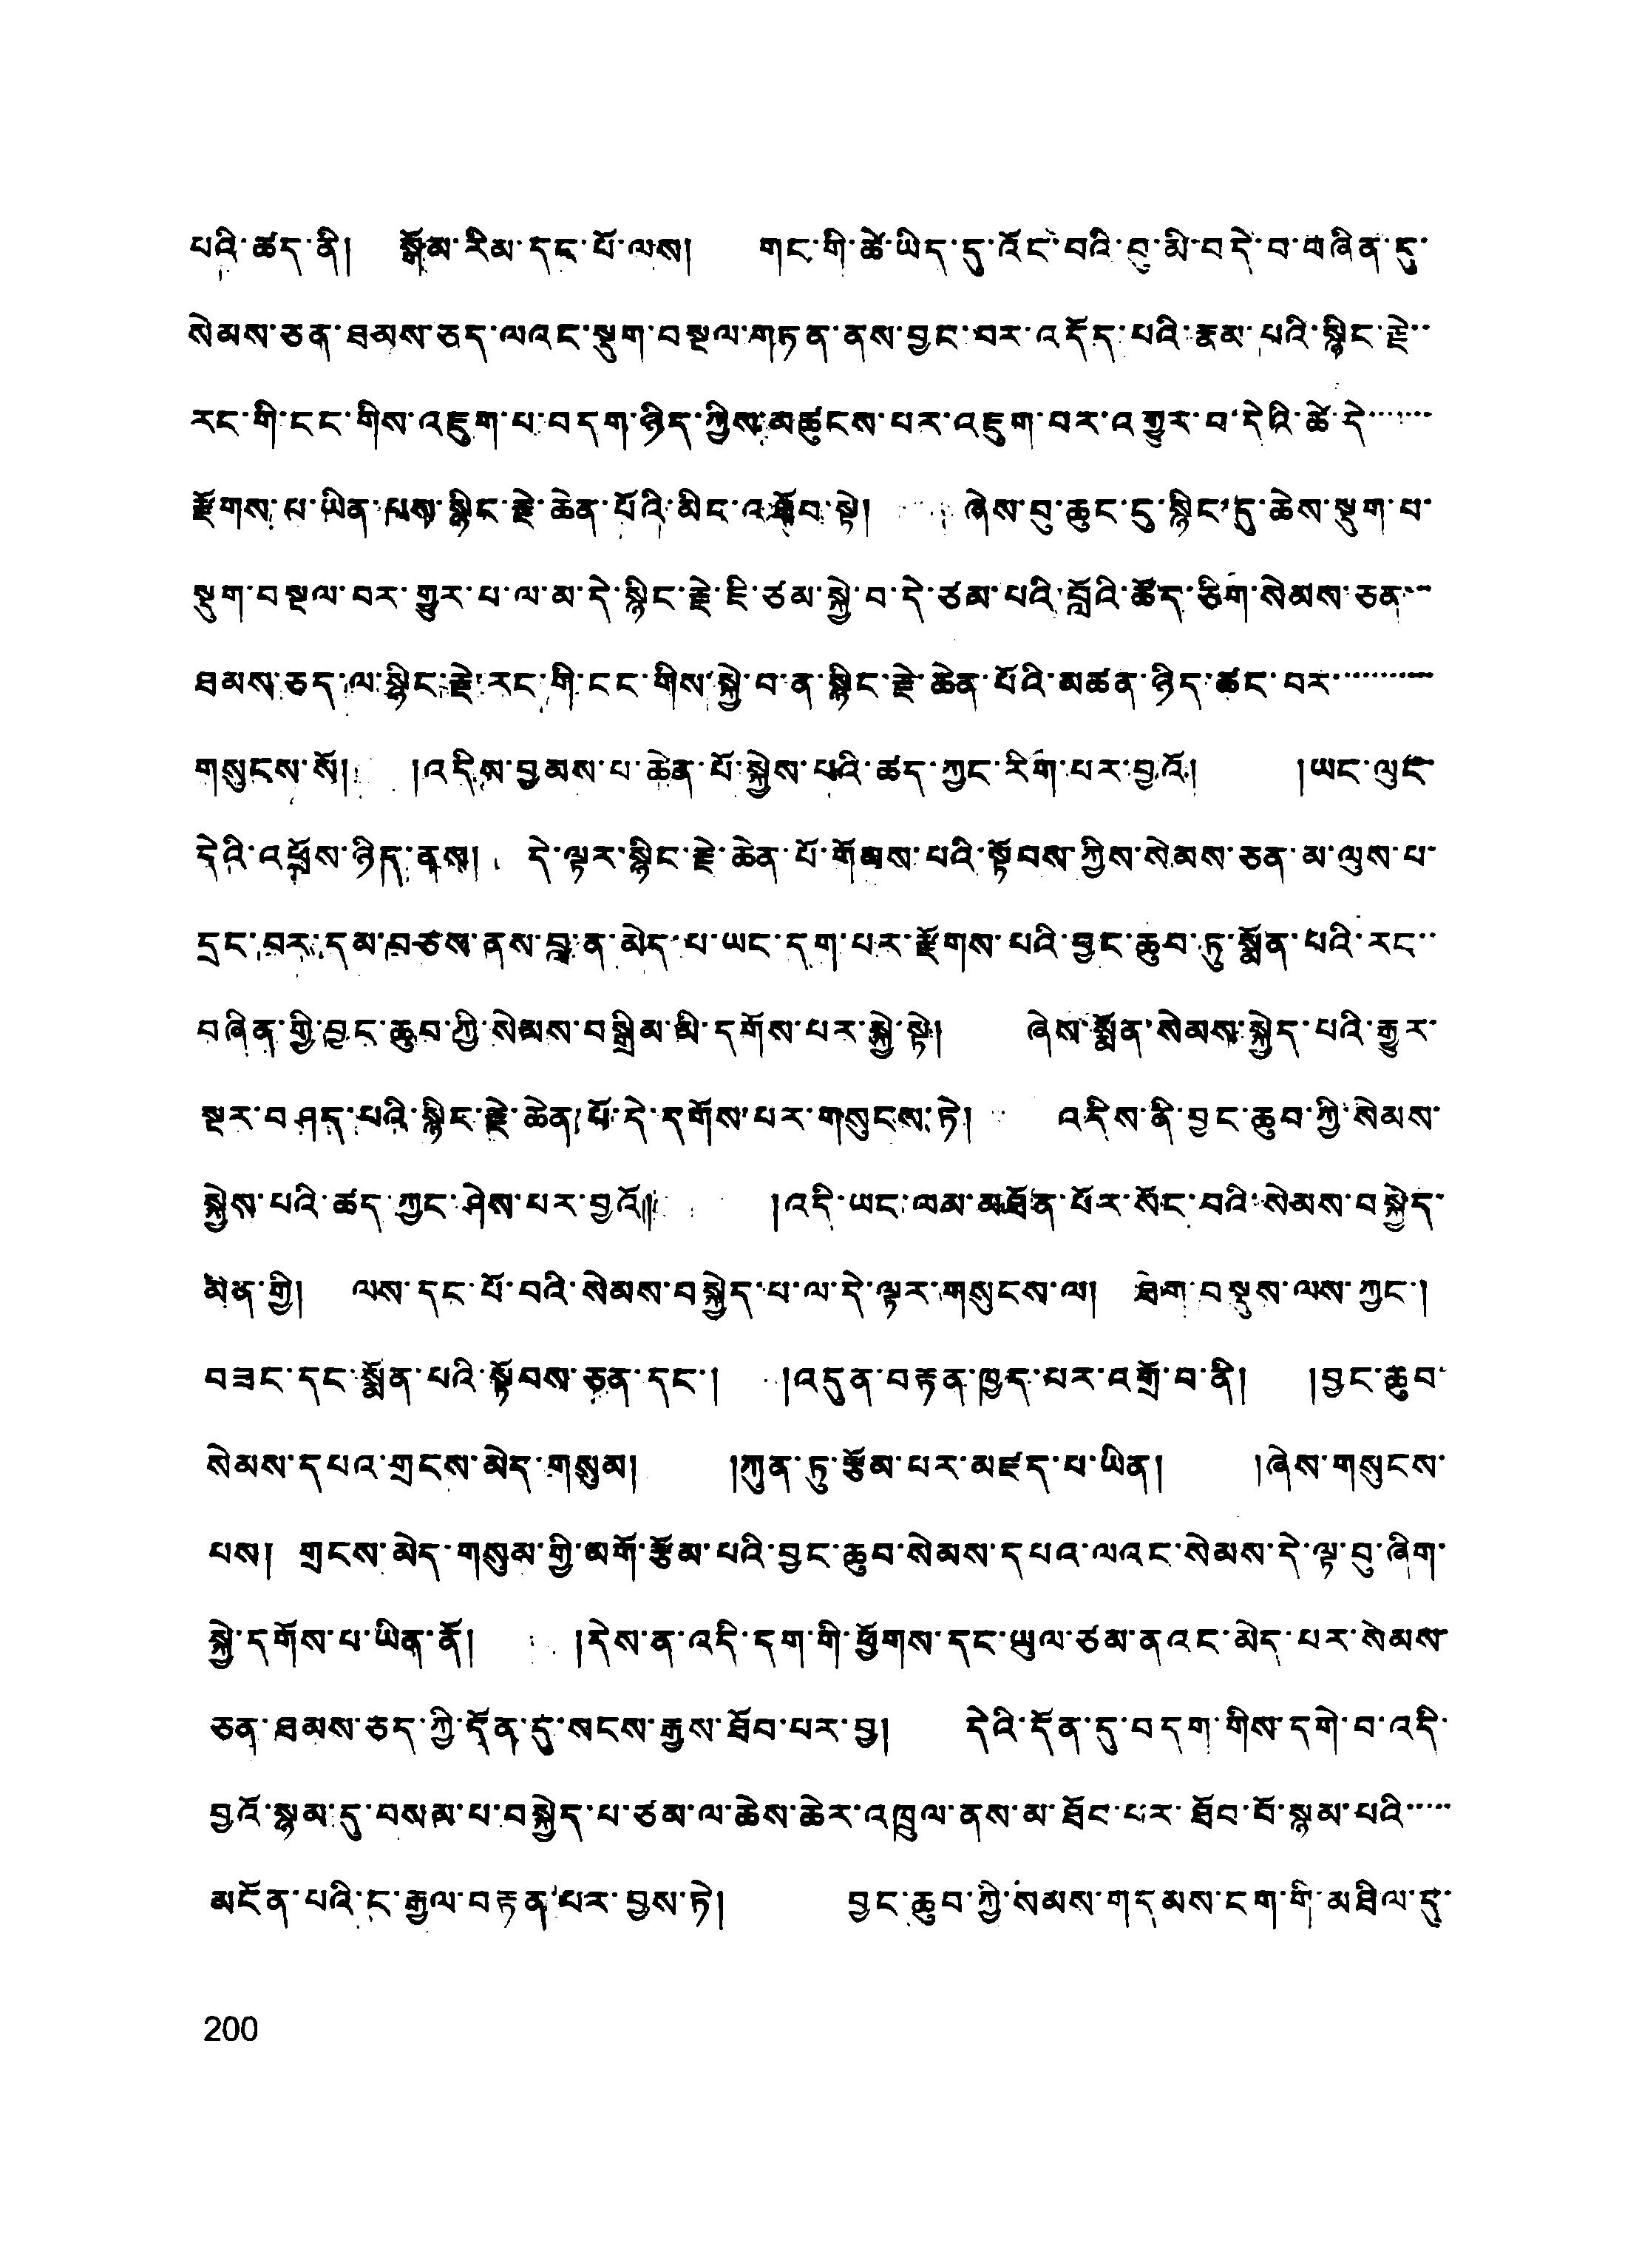 པའི་ཚད་ནི། སྒོམ་རིམ་དང་པོ་ལས། གང་གི་ཚེ་ཡིད་དུ་འོང་བའི་བུ་མི་བདེ་བ་བཞིན་དུ་
སེམས་ཅན་ཐམས་ཅད་ལའང་སྡུག་བསྔལ་གཏན་ནས་བྱང་བར་འདོད་པའི་རྣམ་པའི་སྙིང་རྗེ་
རང་གི་ངང་གིས་འཇུག་པ་བདག་ཉིད་ཀྱིས་མཚུངས་པར་འཇུག་བར་འགྱུར་བ་དེའི་ཚེ་དེ་
རྫོགས་པ་ཡིན་པས་སྙིང་རྗེ་ཆེན་པོའི་མིང་འཐོབ་སྟེ། ཞེས་བུ་ཆུང་ངུ་སྙིང་དུ་ཆེས་སྡུག་པ་
སྡུག་བསྔལ་བར་གྱུར་པ་ལ་མ་དེ་སྙིང་རྗེ་ཇི་ཙམ་སྐྱེ་བ་དེ་ཙམ་པའི་བློའི་ཚོད་ཅིག་སེམས་ཅན་
ཐམས་ཅད་ལ་སྙིང་རྗེ་རང་གི་ངང་གིས་སྐྱེ་བ་ན་སྙིང་རྗེ་ཆེན་པོའི་མཚན་ཉིད་ཚང་བར་
གསུངས་སོ། །འདིས་བྱམས་པ་ཆེན་པོ་སྐྱེས་པའི་ཚད་ཀྱང་རིག་པར་བྱའོ། །ཡང་ལུང་
དེའི་འཕྲོས་ཉིད་ནས། དེ་ལྟར་སྙིང་རྗེ་ཆེན་པོ་གོམས་པའི་སྟོབས་ཀྱིས་སེམས་ཅན་མ་ལུས་པ་
དྲང་བར་དམ་བཅས་ནས་བླ་ན་མེད་པ་ཡང་དག་པར་རྫོགས་པའི་བྱང་ཆུབ་ཏུ་སྨོན་པའི་རང་
བཞིན་གྱི་བྱང་ཆུབ་ཀྱི་སེམས་བསྒྲིམ་མི་དགོས་པར་སྐྱེ་སྟེ། ཞེས་སྨོན་སེམས་སྐྱེད་པའི་རྒྱུར་
སྔར་བཤད་པའི་སྙིང་རྗེ་ཆེན་པོ་དེ་དགོས་པར་གསུངས་ཏེ། འདིས་ནི་བྱང་ཆུབ་ཀྱི་སེམས་
སྐྱེས་པའི་ཚད་ཀྱང་ཤེས་པར་བྱའོ།། །འདི་ཡང་ལམ་མཐོན་པོར་སོང་བའི་སེམས་བསྐྱེད་
མིན་གྱི། ལས་དང་པོ་བའི་སེམས་བསྐྱེད་པ་ལ་དེ་ལྟར་གསུངས་ལ། ཐེག་བསྡུས་ལས་ཀྱང་།
བཟང་དང་སྨོན་པའི་སྟོབས་ཅན་དང་། །འདུན་བརྟན་ཁྱད་པར་འགྲོ་བ་ནི། །བྱང་ཆུབ་
སེམས་དཔའ་གྲངས་མེད་གསུམ། །ཀུན་ཏུ་རྩོམ་པར་མཛད་པ་ཡིན། །ཞེས་གསུངས་
པས། གྲངས་མེད་གསུམ་གྱི་མགོ་རྩོམ་པའི་བྱང་ཆུབ་སེམས་དཔའ་ལའང་སེམས་དེ་ལྟ་བུ་ཞིག་
སྐྱེ་དགོས་པ་ཡིན་ནོ། །དེས་ན་འདི་དག་གི་ཕྱོགས་དང་ཡུལ་ཙམ་ནའང་མེད་པར་སེམས་
ཅན་ཐམས་ཅད་ཀྱི་དོན་དུ་སངས་རྒྱས་ཐོབ་པར་བྱ། དེའི་དོན་དུ་བདག་གིས་དགེ་བ་འདི་
བྱའོ་སྙམ་དུ་བསམ་པ་བསྐྱེད་པ་ཙམ་ལ་ཆེས་ཆེར་འཁྲུལ་ནས་མ་ཐོབ་པར་ཐོབ་བོ་སྙམ་པའི་
མངོན་པའི་ང་རྒྱལ་བརྟན་པར་བྱས་ཏེ། བྱང་ཆུབ་ཀྱི་སེམས་གདམས་ངག་གི་མཐིལ་དུ་
200